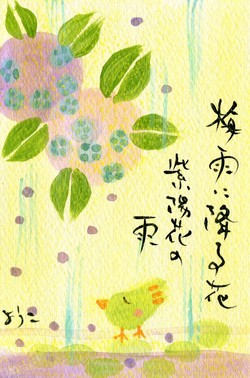 梅雨に降る花
紫陽花の
雨
ようこ